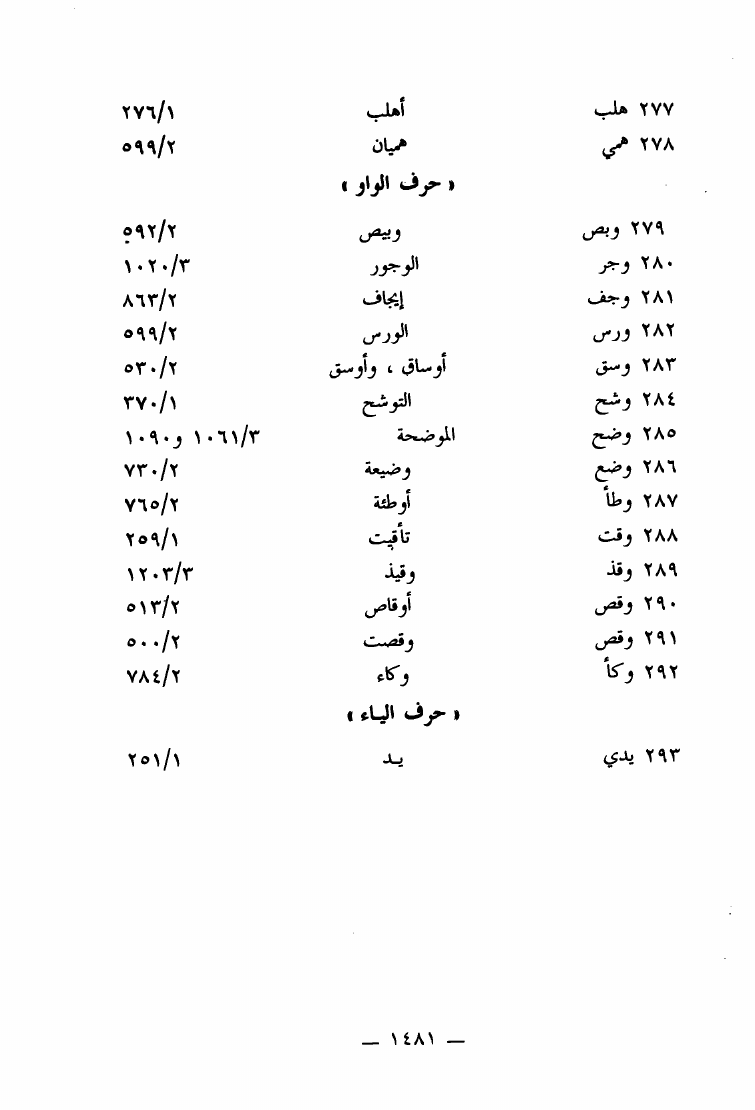 ٢٧٧ هلب أهلب ٢٧٦/١
٢٧٨ همي هميان ٥٩٩/٢
« حرف الواو »
٢٧٩ وبص وبيص ٥٩٢/٢
٢٨٠ وجر الوجور ١٠٢٠/٣
٢٨١ وجف إيجاف ٨٦٣/٢
٢٨٢ ورس الورس ٥٩٩/٢
٢٨٣ وسق أوساق ، وأوسق ٥٣٠/٢
٢٨٤ وشح التوشح ٣٧٠/١
٢٨٥ وضح الموضحة ١٠٦١/٣ و١٠٩٠
٢٨٦ وضع وضيعة ٧٣٠/٢
٢٨٧ وطأ أوطئة ٧٦٥/٢
٢٨٨ وقت تأقيت ٢٥٩/١
٢٨٩ وقذ وقيذ ١٢٠٣/٣
٢٩٠ وقص أوقاص ٥١٣/٢
٢٩١ وقص وقصت ٥٠٠/٢
٢٩٢ وكأ وكاء ٧٨٤/٢
« حرف الياء »
٢٩٣ يدي يد ٢٥١/١
— ١٤٨١ —